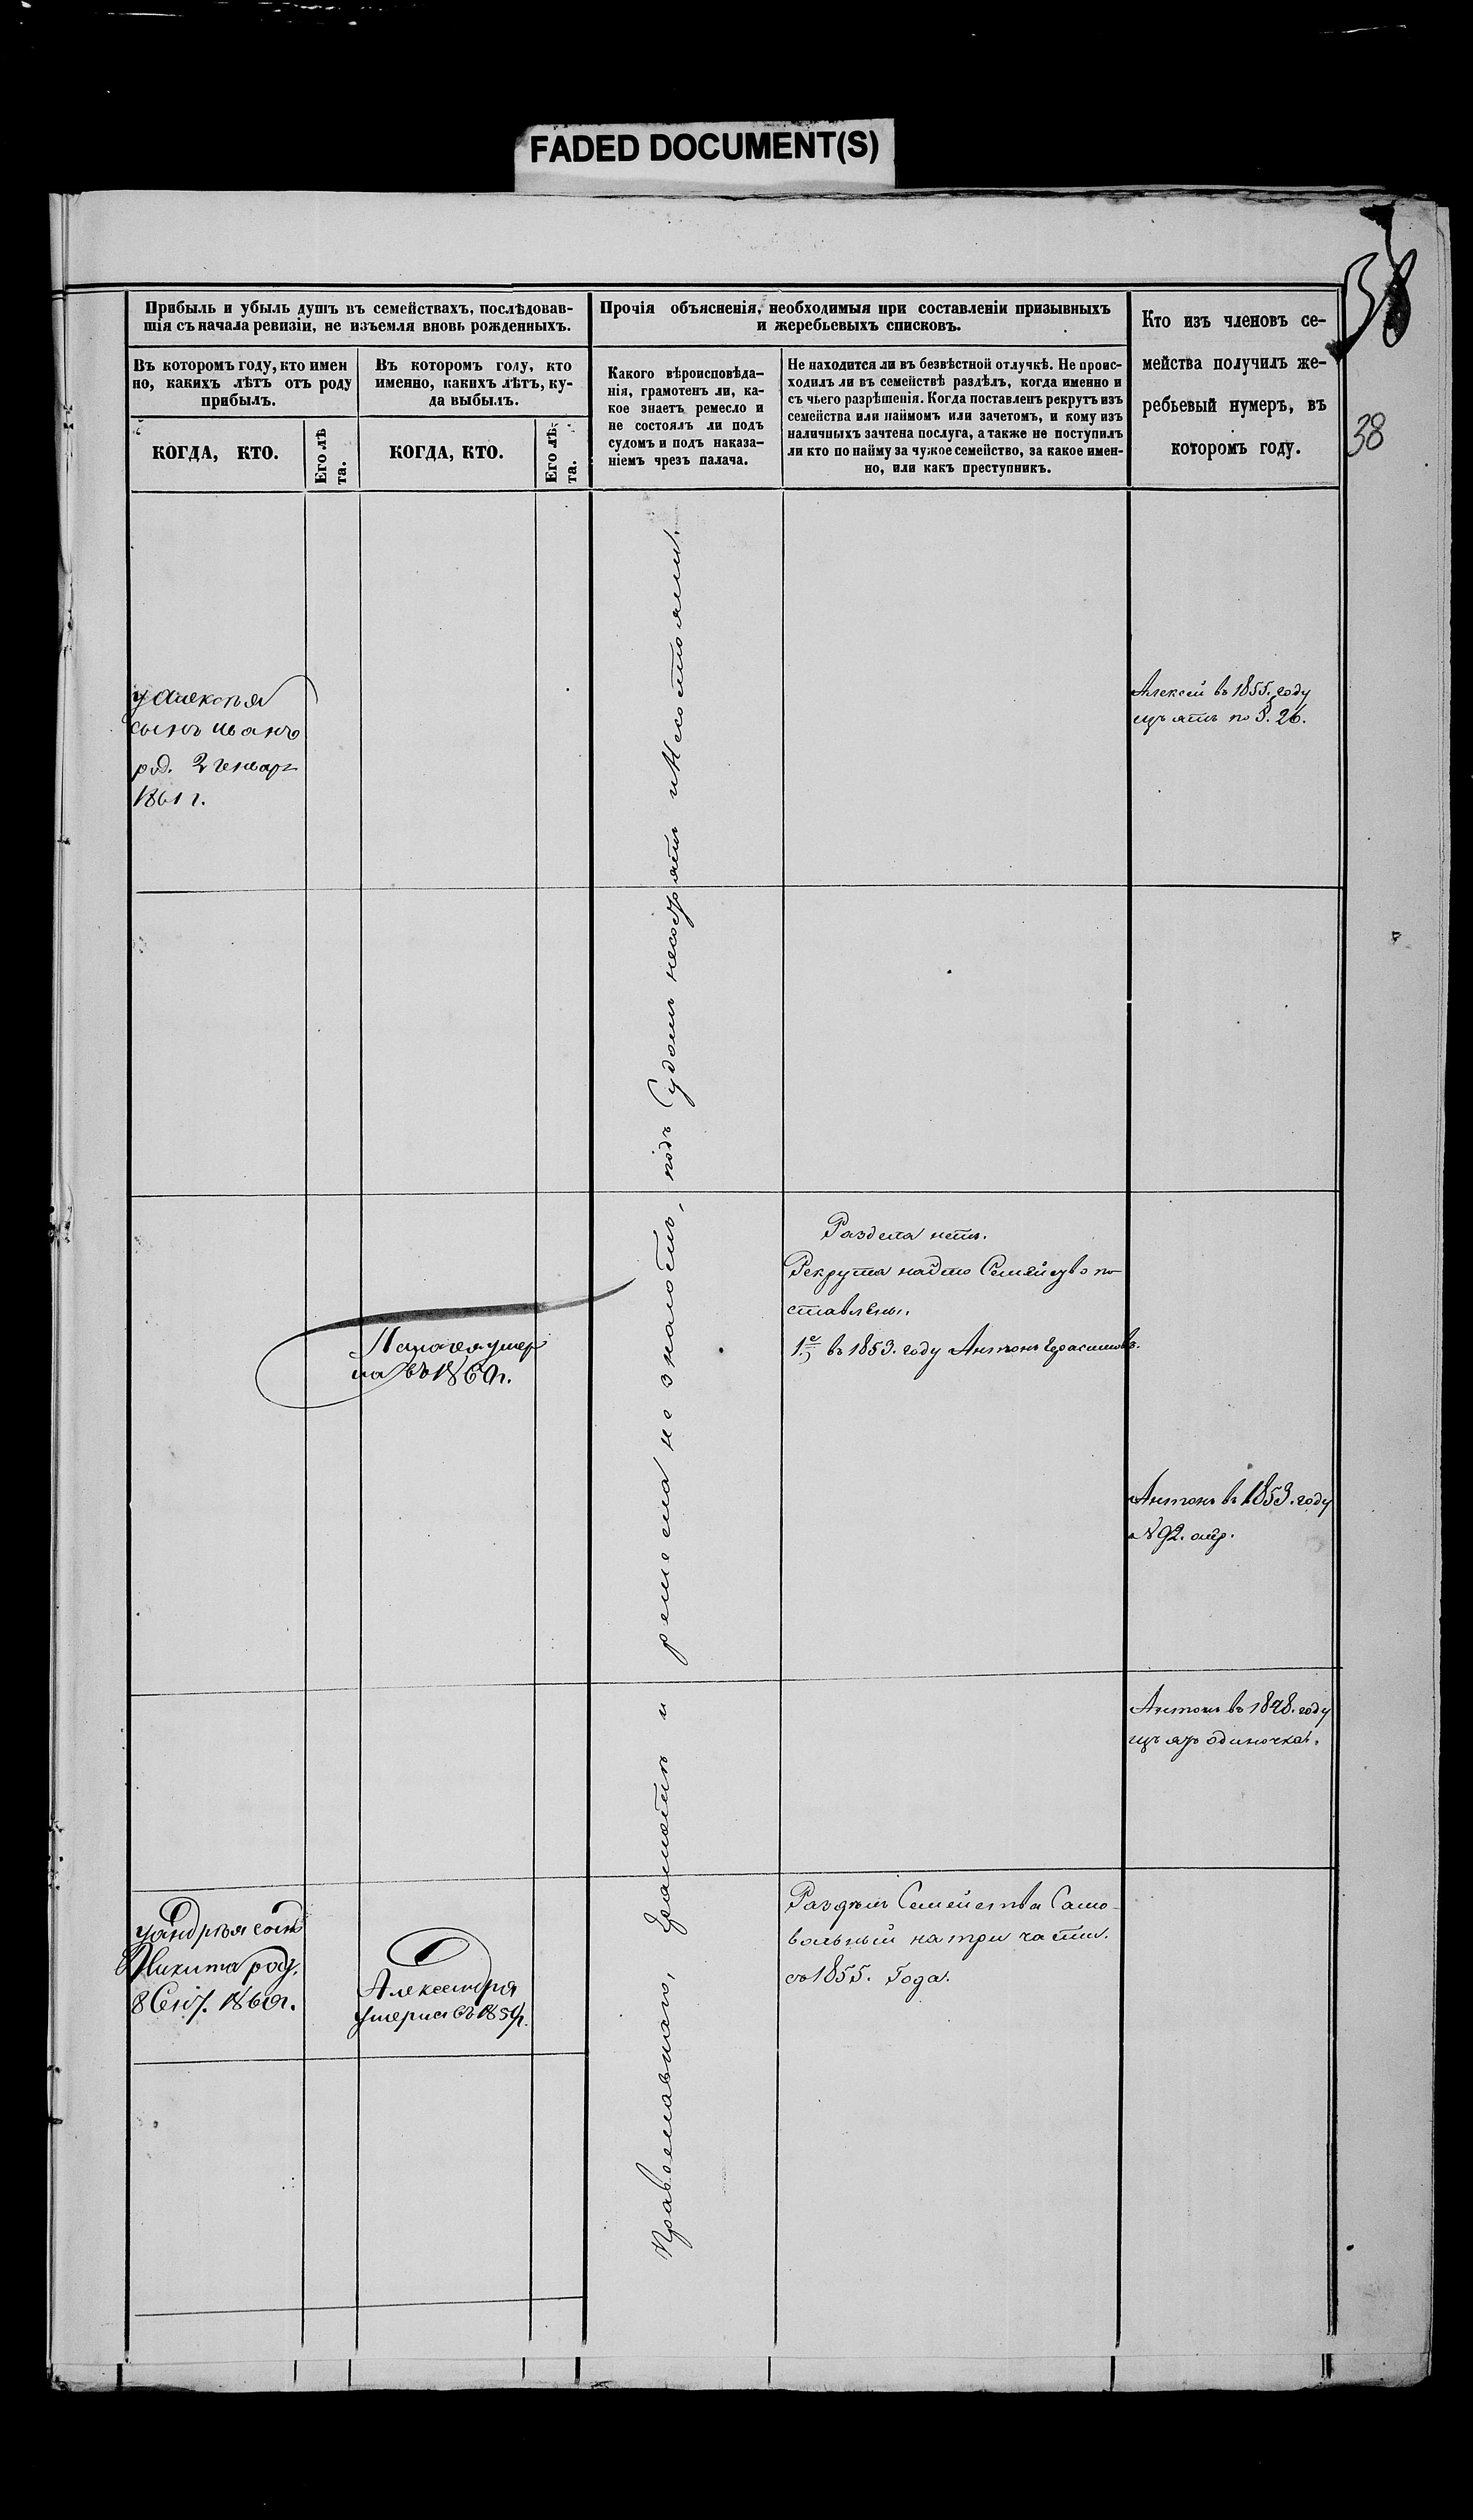 FADED DOCUMENT(S)
38
38
Прибыль и убыль душъ въ семействахъ, послѣдовав-
шія съ начала ревизіи, не изъемля вновь рожденныхъ.
Въ которомъ году, кто имен
но, какихъ лѣтъ отъ роду
прибылъ.
Въ которомъ году, кто
именно, какихъ лѣтъ, ку-
да выбылъ.
КОГДА, КТО.
Его лѣ
та.
КОГДА, КТО.
Его лѣ-
та.
Прочія объясненія, необходимыя при составленіи призывныхъ
и жеребьевыхъ списковъ.
Какого вѣроисповѣда-
нія, грамотенъ ли, ка-
кое знаетъ ремесло и
не состоялъ ли подъ
судомъ и подъ наказа-
ніемъ чрезъ палача.
Не находится ли въ безвѣстной отлучкѣ. Не проис-
ходилъ ли въ семействѣ раздѣлъ, когда именно и
съ чьего разрѣшенія. Когда поставленъ рекрутъ изъ
семейства или наймомъ или зачетомъ, и кому изъ
наличныхъ зачтена послуга, а также не поступилъ
ли кто по найму за чужое семейство, за какое имен-
но, или какъ преступникъ.
Кто изъ членовъ се-
мейства получилъ же-
ребьевый нумеръ, въ
которомъ году.
у Алексѣя
сынъ Иванъ
род. 2 генвар
1861 г.
Алексей въ 1855. году
по §. 26.
Православнаго, грамотѣ и ремесла не знаютъ, подъ Судомъ
Раздела нетъ.
Рекрута Семейство по
ставлены.
1.е въ 1853. году Антонъ Герасимовъ.
умер
ла въ 1860 г.
Антонъ въ 1853. году
№ 92.
Антонъ въ 1848. году
одиночка.
у Андрѣя сынъ
Никита род.
8 1860 г.
Александра
умерла въ 1859 г.
Раздѣлъ Семейства Само-
вольный на три части.
съ 1855. Года.